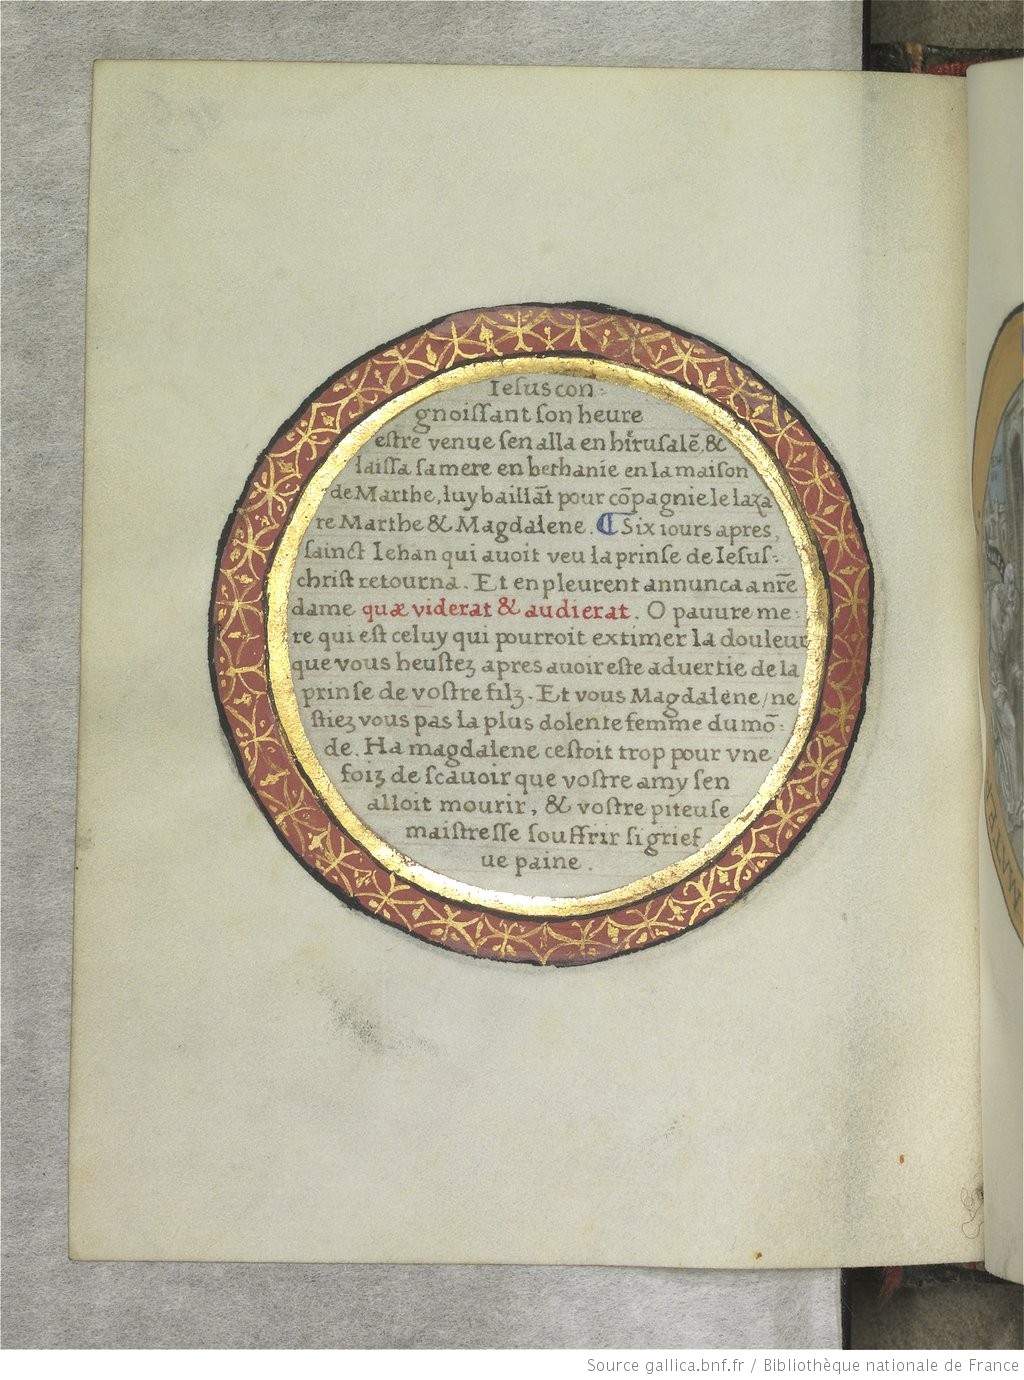 Iesus con-
gnoissant son heure
estre venue sen alla en hie᷑rusalē, &
laissa sa mere en bethanie en la maison
de Marthe, luy baillāt pour cōpagnie le laza
re Marthe & Magdalene. ¶ Six iours apres,
sainct Iehan qui auoit veu la prinse de Iesus-
christ retourna. Et en pleurent annunca a nr̄e
dame quæ viderat & audierat. O pauure me-
re qui est celuy qui pourroit extimer la douleur
que vous heustez apres auoir este aduertie de la
prinse de vostre filz. Et vous Magdalene/ne
stiez vous pas la plus dolente femme du mō-
de. Ha magdalene cestoit trop pour vne
foiz de scauoir que vostre amy sen
alloit mourir, & vostre piteuse
maistresse souffrir si grief
ue paine.
MATER
Source gallica.bnf.fr / Bibliothèque nationale de France